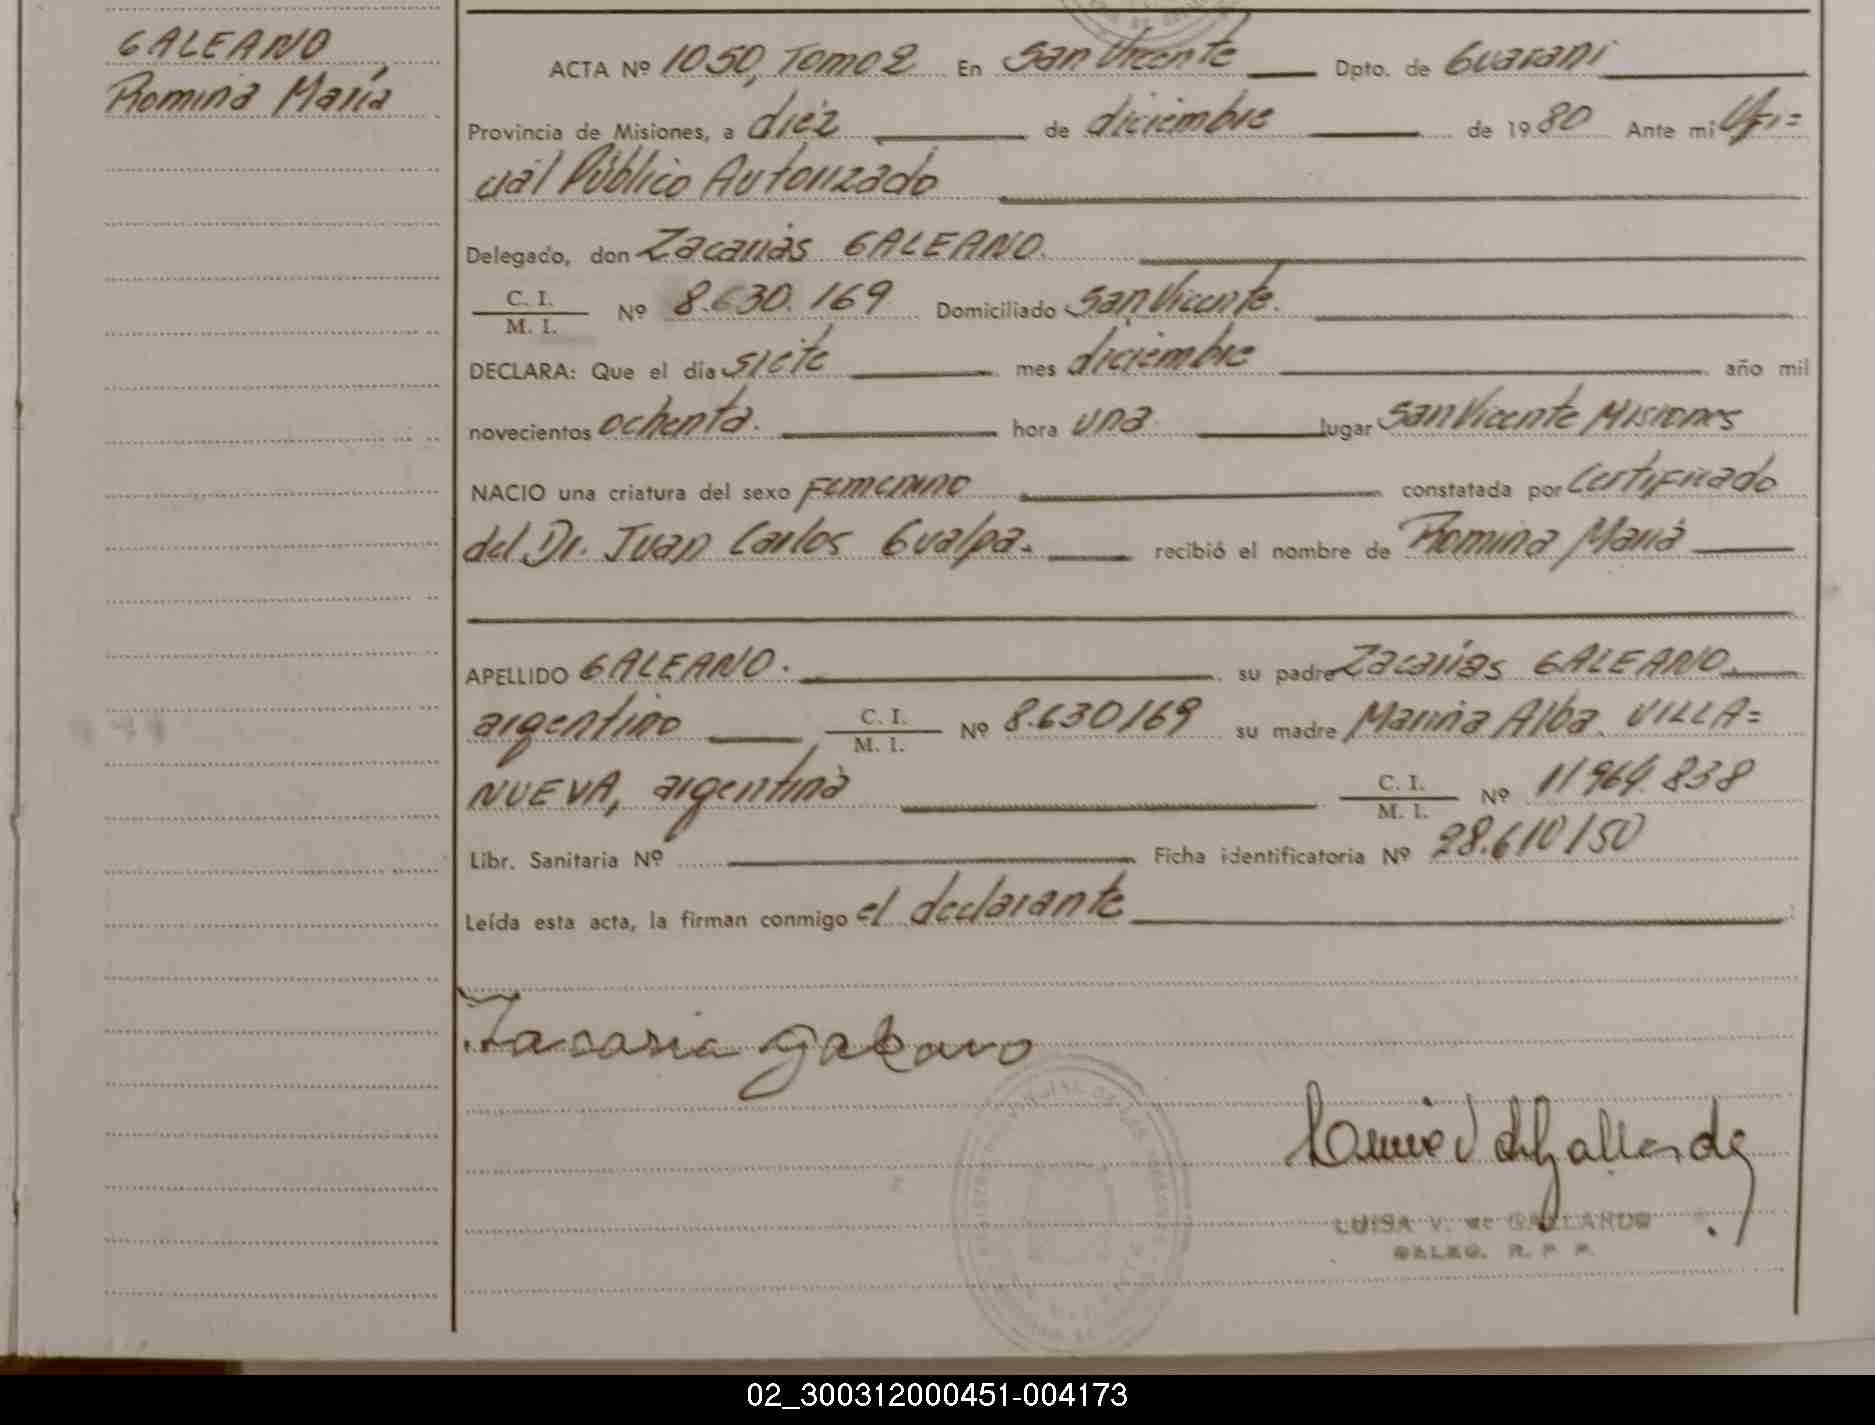 GALEANO
Romina María
ACTA Nº 1050, Tomo 2 En San Vicente Dpto. de Guaraní
Provincia de Misiones, a diez de diciembre de 1980 Ante mi Ofi=
cial Público Autorizado
Delegado, don Zacarías GALEANO.
C. I.
M. I. Nº 8.630.169 Domiciliado San Vicente.
DECLARA: Que el día siete mes diciembre año mil
novecientos ochenta. hora una lugar San Vicente Misiones
NACIO una criatura del sexo femenino constatada por Certificado
del Dr. Juan Carlos Gualpa. recibió el nombre de Romina María
APELLIDO GALEANO. su padre Zacarías GALEANO.
argentino C. I. M. I. Nº 8.630169 su madre Marina Alba VILLA=
NUEVA, argentina C. I. M. I. Nº 11964.838
Libr. Sanitaria Nº Ficha identificatoria Nº 28.610150
Leída esta acta, la firman conmigo el declarante
Zacaria galeano
LUISA V. de GALLARDO
R. P. P.
02_300312000451-004173